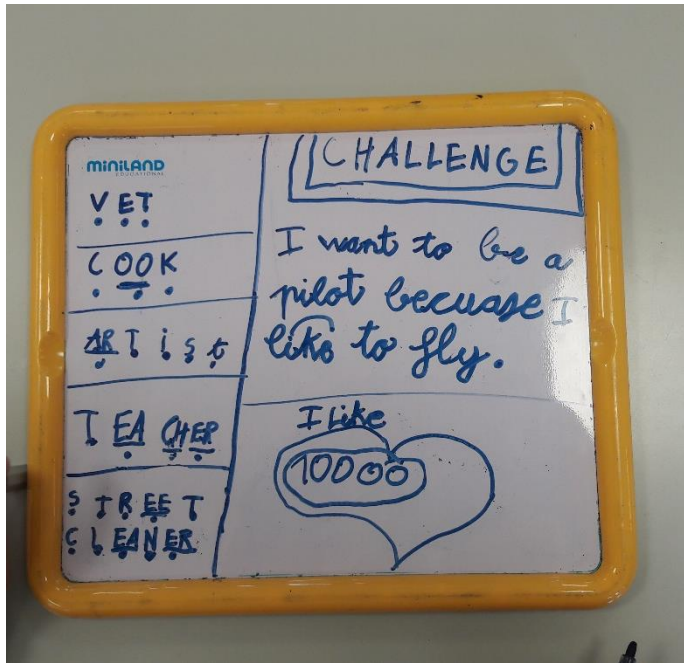 miniland
EDUCATIONAL
VET
COOK
ARTist
TEACHER
STREET
CLEANER
CHALLENGE
I want to be a
pilot becuase I
like to fly.
I Like
10000